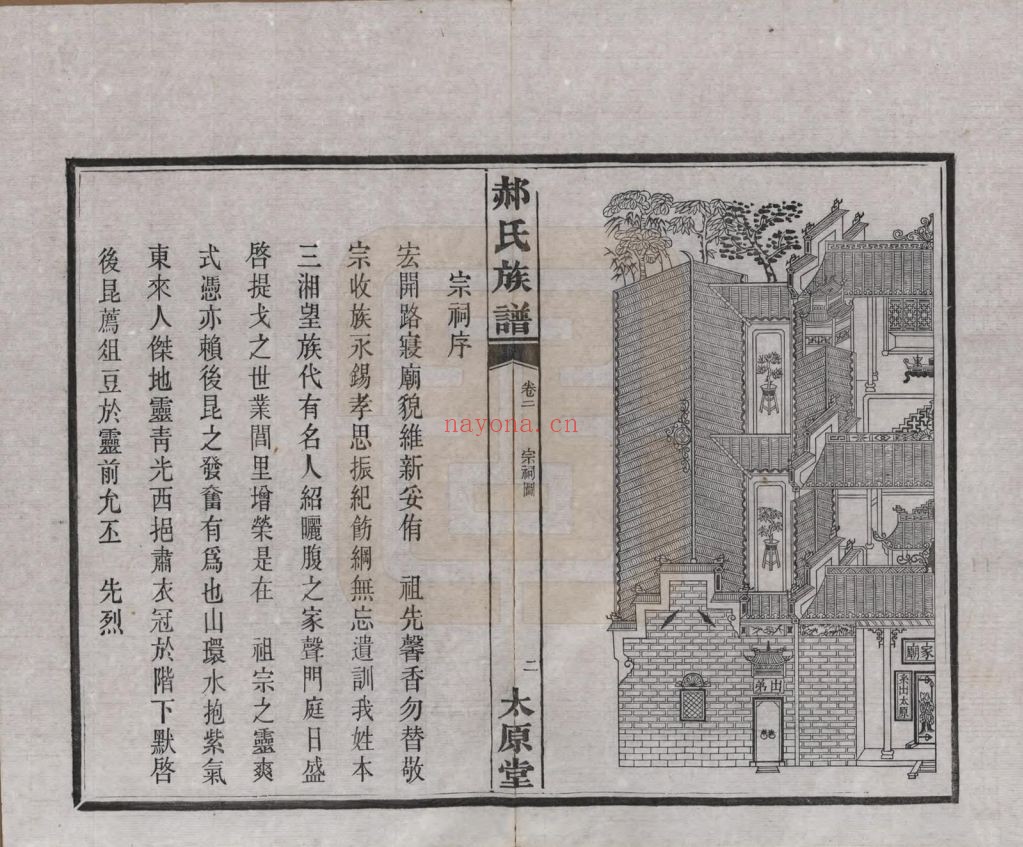 家廟
系出太原
出弟
郝氏族譜
卷二
宗祠圖
二
太原堂
宗祠序
宏開路寢廟貌維新妥侑　祖先馨香勿替敬
宗收族永錫孝思振紀飭綱無忘遺訓我姓本
三湘望族代有名人紹曬腹之家聲門庭日盛
啓提戈之世業閭里增榮是在　祖宗之靈爽
式憑亦賴後昆之發奮有爲也山環水抱紫氣
東來人傑地靈青光西挹肅衣冠於階下默啓
後昆薦俎豆於靈前允丕　先烈
nayona.cn